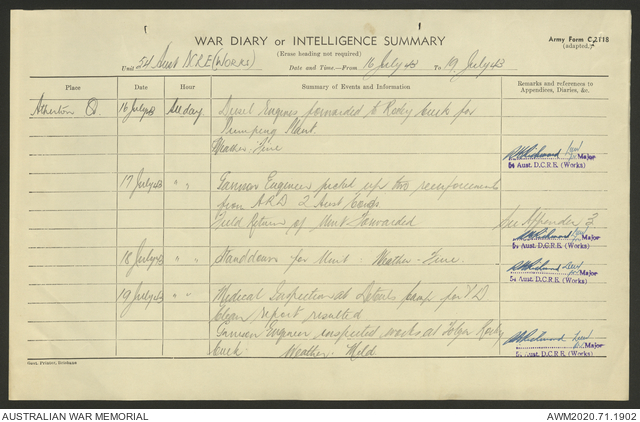 WAR DIARY or INTELLIGENCE SUMMARY
(Erase heading not required)
Army Form C2118
(adapted.)
Unit 54 Aust DCRE (Works) Date and Time—From 16 July 43 To 19 July 43
Place Date Hour Summary of Events and Information Remarks and references to Appendices, Diaries, &c.
Atherton Q. 16 July 43 All day Diesel Engines forwarded to Rocky Creek for
Pumping Plant
Weather Fine
Major
54 Aust. D.C.R.E. (Works)
17 July 43 " " Garrison Engineers picked up two reinforcements
from A.R.D. 2 Aust
Field Return of Unit Forwarded See Appendix 3
Major
54 Aust. D.C.R.E. (Works)
18 July 43 " " Stand down for Unit. Weather - Fine.
Major
54 Aust. D.C.R.E. (Works)
19 July 43 " " Medical Inspection at Details Camp for VD
Clean report resulted
Garrison Engineer inspected works at Rocky
Creek. Weather. Mild
Major
54 Aust. D.C.R.E. (Works)
AUSTRALIAN WAR MEMORIAL AWM2020.71.1902